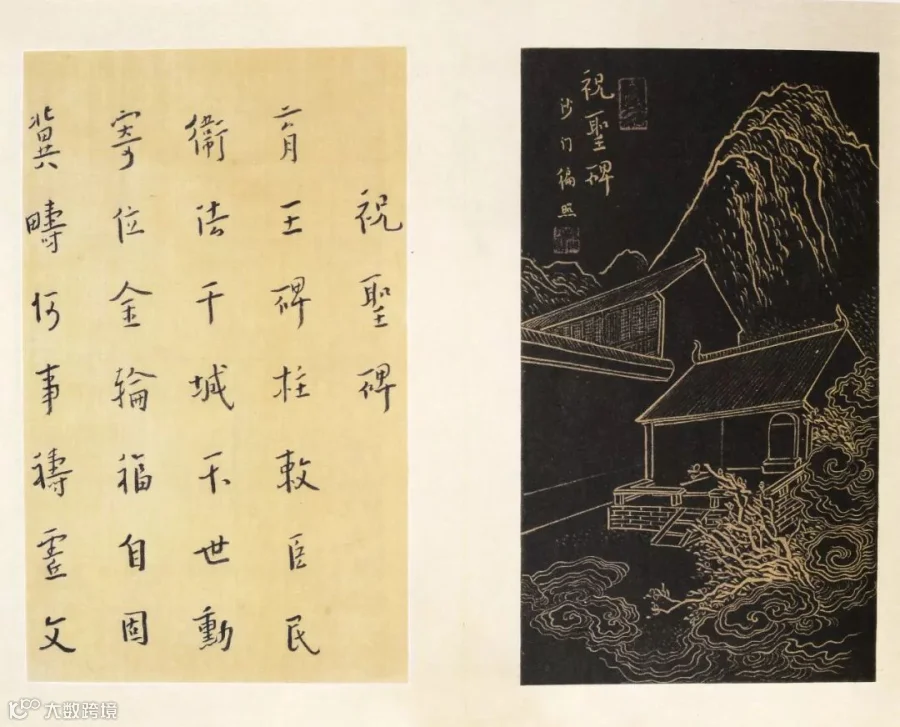 祝聖碑
沙门徧照
祝聖碑
育王碑柱敕臣民
衛法干城不世勳
寄位金輪福自固
冀疇何事禱靈文
大数跨境